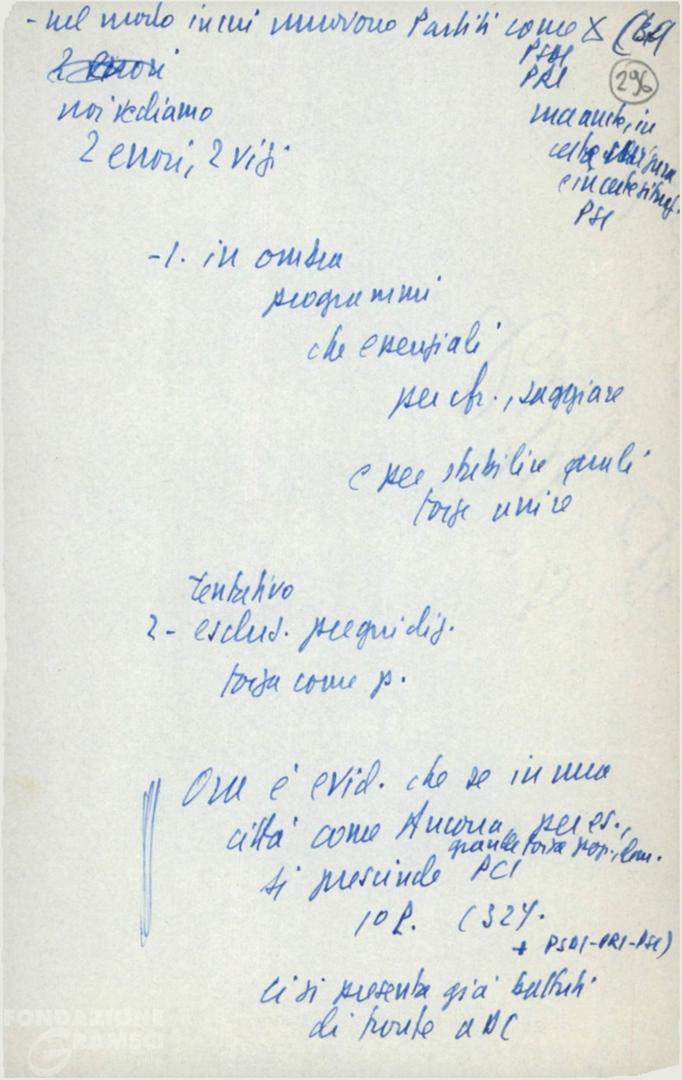 - nel modo in cui muovono Partiti come
PSDI
PRI
296
2 errori
noi vediamo
ma anche, in
2 errori, 2 vizi
certa misura
e in certe situaz.
PSI
-1. in ombra
programmi
che essenziali
per cfr., saggiare
e per stabilire quali
forze unire
Tentativo
2- esclus. pregiudiz.
forza come p.
Ora è evid. che se in una
città come Ancona, per es.,
grande forza pop., dem.
si prescinde PCI
10 P. (32%
+ PSDI-PRI-PSI)
ci si presenta già battuti
di fronte a DC
FONDAZIONE
GRAMSCI